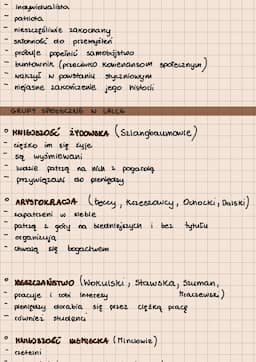 - indywidualista
- patriota
- nieszczęśliwie zakochany
- skłonność do przemyśleń
- próbuje popełnić samobójstwo
- buntownik (przeciwko konwenansom społecznym)
- walczył w powstaniu styczniowym
- niejasne zakończenie jego historii
GRUPY SPOŁECZNE W LALCE
○ MNIEJSZOŚĆ ŻYDOWSKA (Szlangbaumowie)
- ciężko im się żyje
- są wyśmiewani
- ludzie patrzą na nich z pogardą
- przywiązani do pieniędzy
○ ARYSTOKRACJA (Łęccy, Krzeszowscy, Ochocki, Dalski)
- zapatrzeni w siebie
- patrzą z góry na biedniejszych i bez tytułu
- organizują
- chwalą się bogactwem
○ MIESZCZAŃSTWO (Wokulski, Stawska, Szuman,
- pracuje i robi interesy Mraczewski)
- pieniędzy dorabia się przez ciężką pracę
- również studenci
○ MNIEJSZOŚĆ NIEMIECKA (Minclowie)
- rzetelni